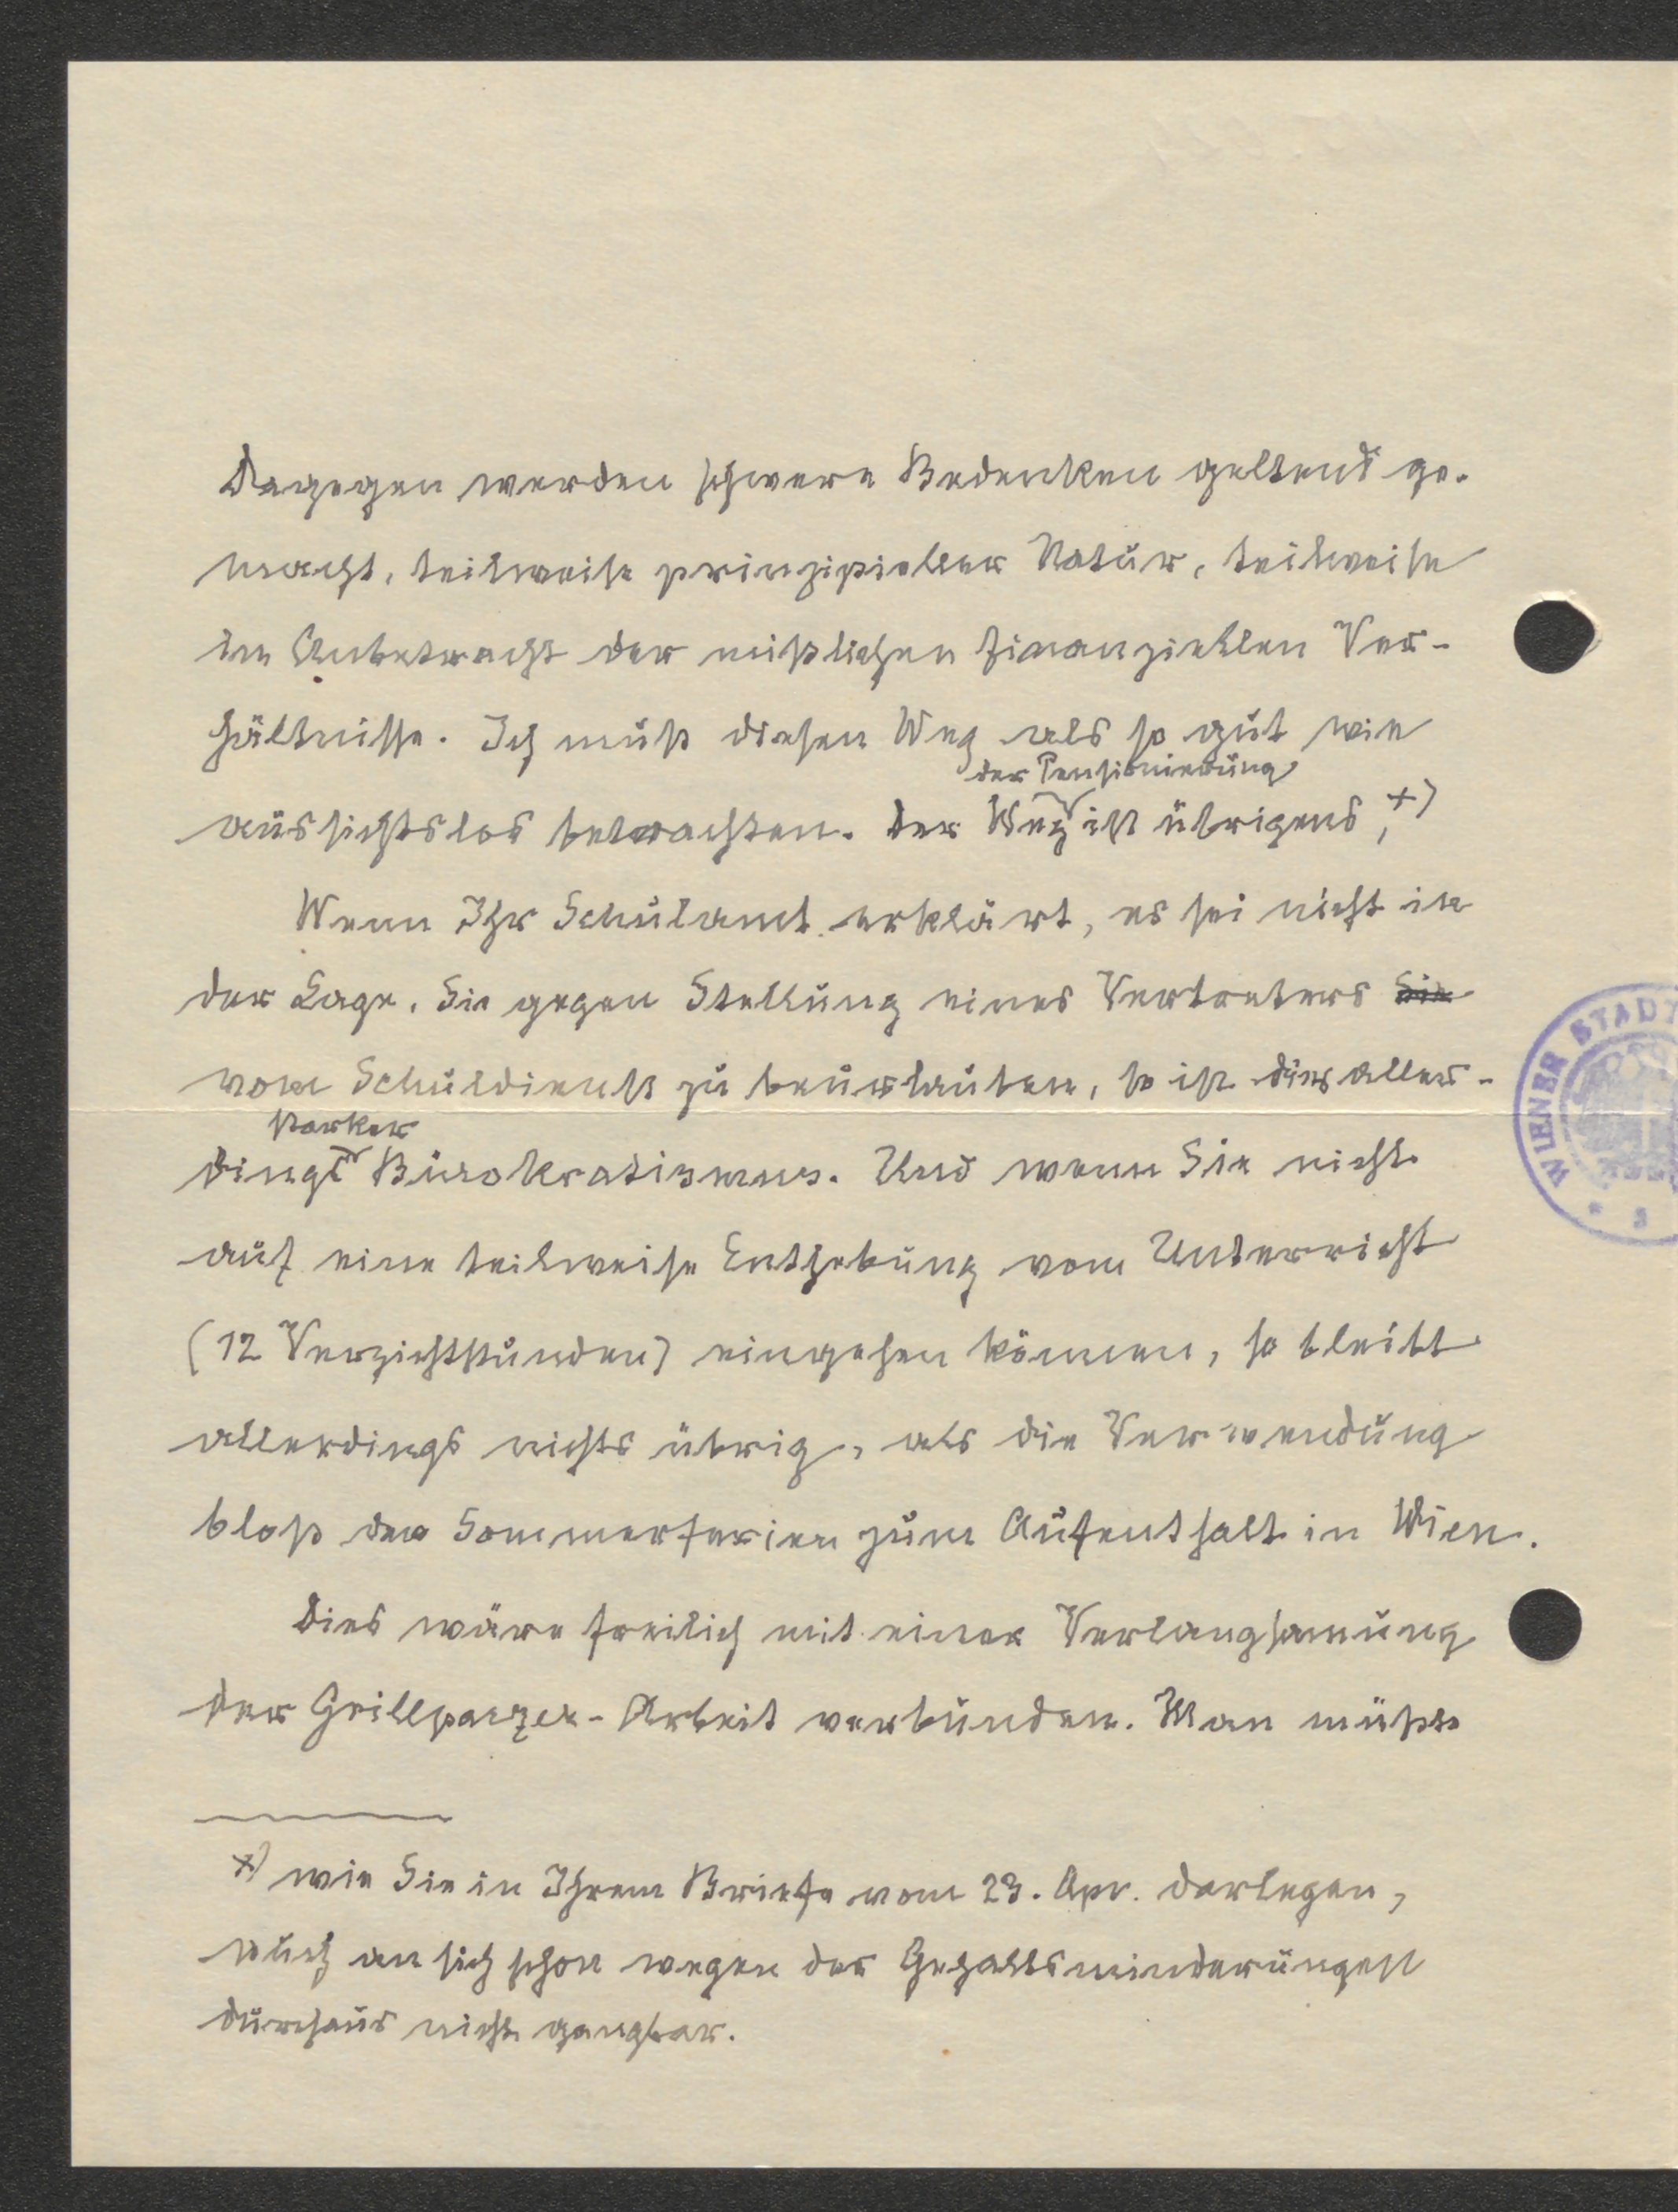 Dagegen werden schwere Bedenken geltend ge-
macht, teilweise prinzipieller Natur, teilweise
in Anbetracht der mißlichen finanziellen Ver-
hältnisse. Ich muß diesen Weg als so gut wie
der Pensionierung
aussichtslos betrachten. Der Weg ist übrigens, +)
Wenn Ihr Schulamt erklärt, es sei nicht in
der Lage, Sie gegen Stellung eines Vertreters Sie
vom Schuldienst zu beurlauben, so ist dies aller-
starker
dings Bürokratismus. Und wenn Sie nicht
auf eine teilweise Enthebung vom Unterricht
(12 Verzichtstunden) eingehen können, so bleibt
allerdings nichts übrig, als die Verwendung
bloß der Sommerferien zum Aufenthalt in Wien.
Dies wäre freilich mit einer Verlangsamung
der Grillparzer-Arbeit verbunden. Man müßte
+) wie Sie in Ihrem Briefe vom 23. Apr. darlegen,
auch an sich schon wegen der Gehaltsminderungen
durchaus nicht gangbar.
WIENER STADT